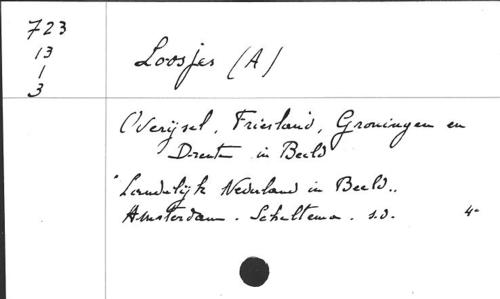 723
13
1
3
Loosjes (A)
Overijsel, Friesland, Groningen en
Drente in Beeld
"Landelijk Nederland in Beeld..
Amsterdam. Scheltema. s.d. 4º